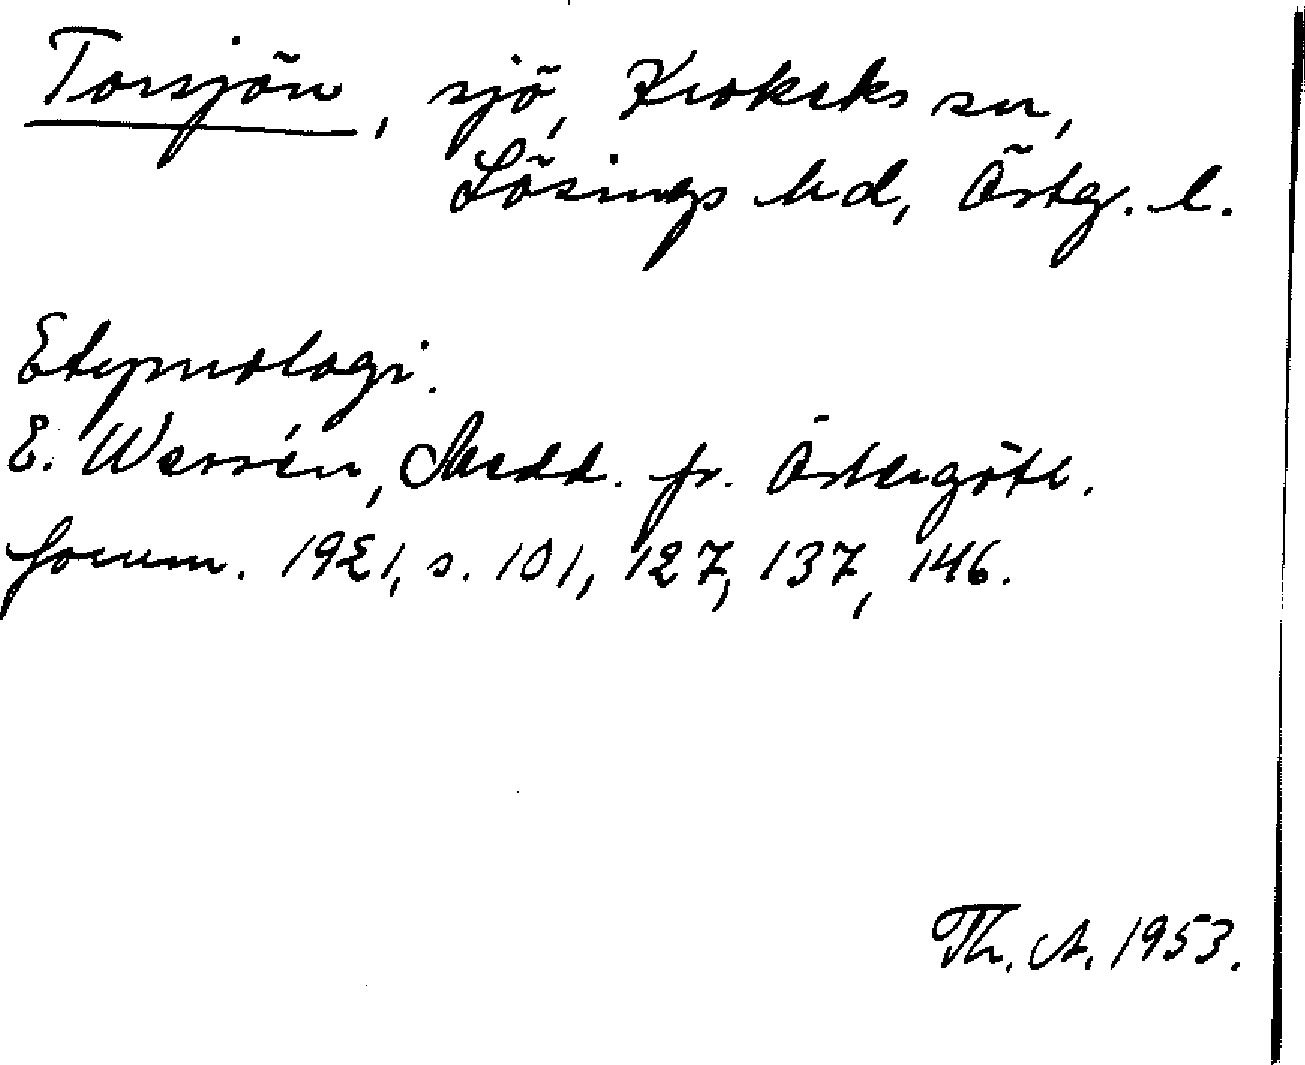 Torsjön, sjö, Krokeks sn,
Lösings hd, Östg. l.
Etymologi.
E. Wessén, Medd. fr. Östergötl.
fornm. 1921, s. 101, 127, 137, 146.
Th. A. 1953.